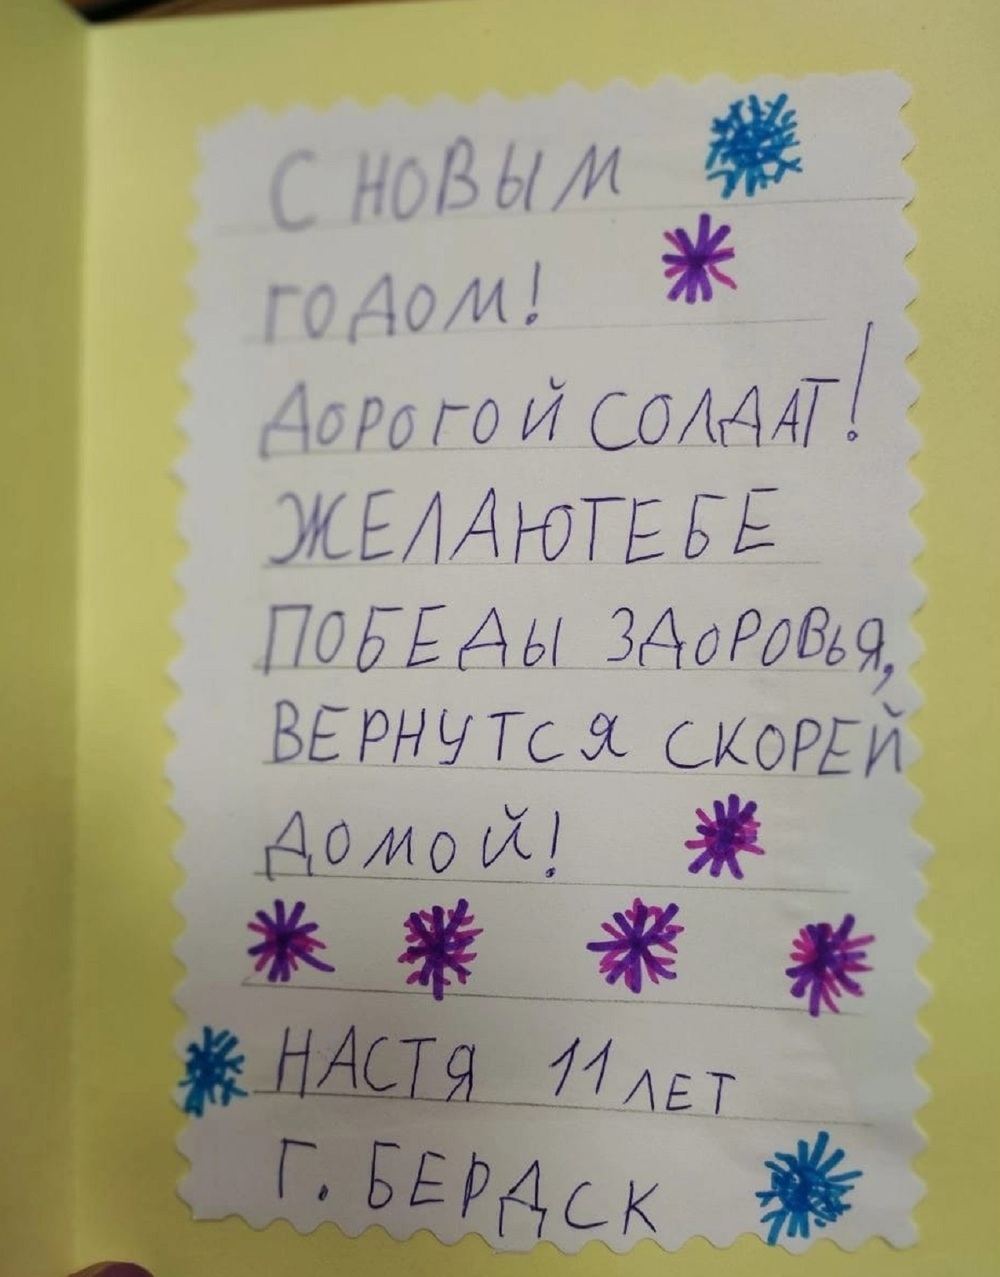 С НОВЫМ
ГОДОМ!
ДОРОГОЙ СОЛДАТ!
ЖЕЛАЮТЕБЕ
ПОБЕДЫ ЗДОРОВЬЯ,
ВЕРНУТСЯ СКОРЕЙ
ДОМОЙ!
НАСТЯ 11 ЛЕТ
Г. БЕРДСК